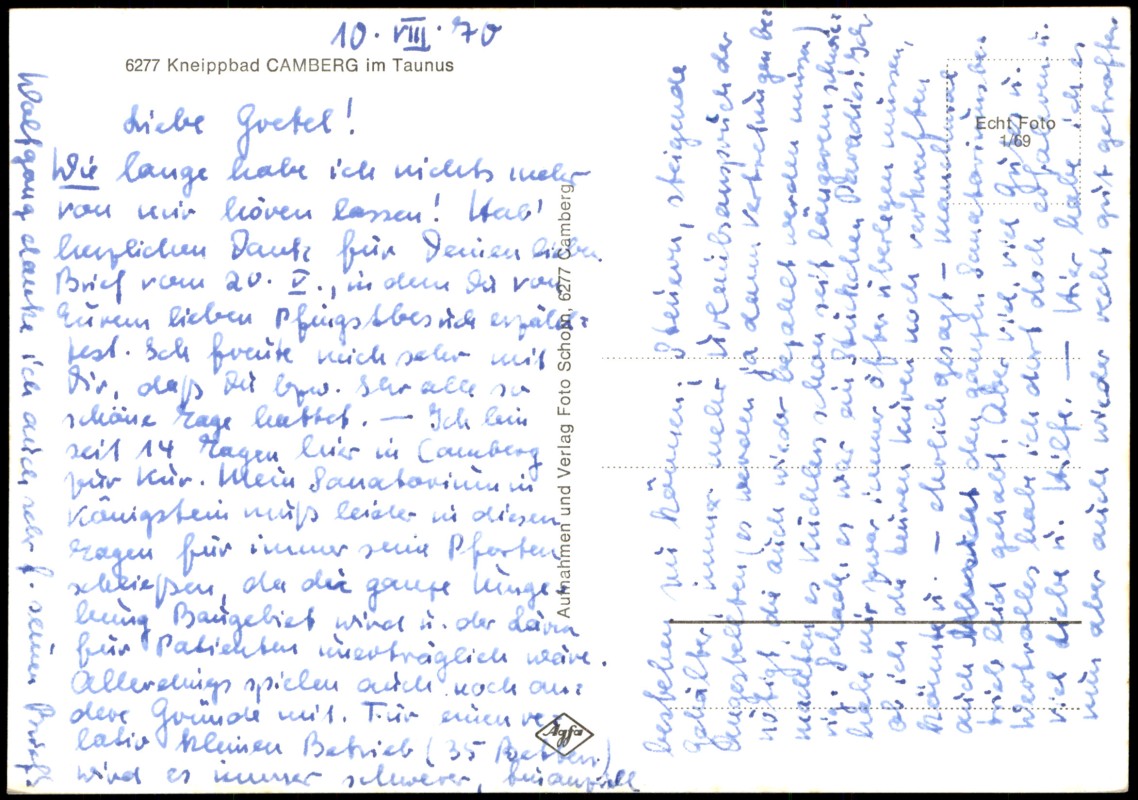 10. VIII. 70
6277 Kneippbad CAMBERG im Taunus
Liebe Gretel!
Wie lange habe ich nichts mehr
von mir hören lassen! Hab'
herzlichen Dank für Deinen lieben
Brief vom 20. V., in dem Du von
Eurem lieben Pfingstbesuch erzähl-
test. Ich freute mich sehr mit
Dir, daß Du bzw. Ihr alle so
schöne Tage hattet. — Ich bin
seit 14 Tagen hier in Camberg
zur Kur. Mein Sanatorium in
Königstein muß leider in diesen
Tagen für immer seine Pforten
schließen, da die ganze Umge-
bung Baugebiet wird u. der Lärm
für Patienten unerträglich wäre.
Allerdings spielen auch noch an-
dere Gründe mit. Für einen re-
lativ kleinen Betrieb (35 Betten)
wird es immer schwerer, finanziell
bestehen zu können! Steuern, steigende
Gehälter, immer mehr Urlaubsanspruch der
Angestellten (es werden ja dann Vertretungen be-
nötigt, die auch wieder bezahlt werden müssen)
machten es Küchles schon seit längerem schwie-
rig. Schade, es war ein Stückchen Paradies! Ich
habe mir zwar immer öfter überlegen müssen,
ob ich die teuren Kuren noch verkraften
könnte u. — ehrlich gesagt — manchmal
auch den ganzen Sanatoriumsbe-
trieb leid gehabt. Aber viel, viel Gutes u.
Wertvolles habe ich dort doch erfahren u.
viel Liebe u. Hilfe. — Hier habe ich es
nun aber auch wieder recht gut getroffen.
Wolfgang danke ich auch sehr f. seinen Brief.
Aufnahmen und Verlag Foto Schorn, 6277 Camberg
Echt Foto
1/69
Agfa